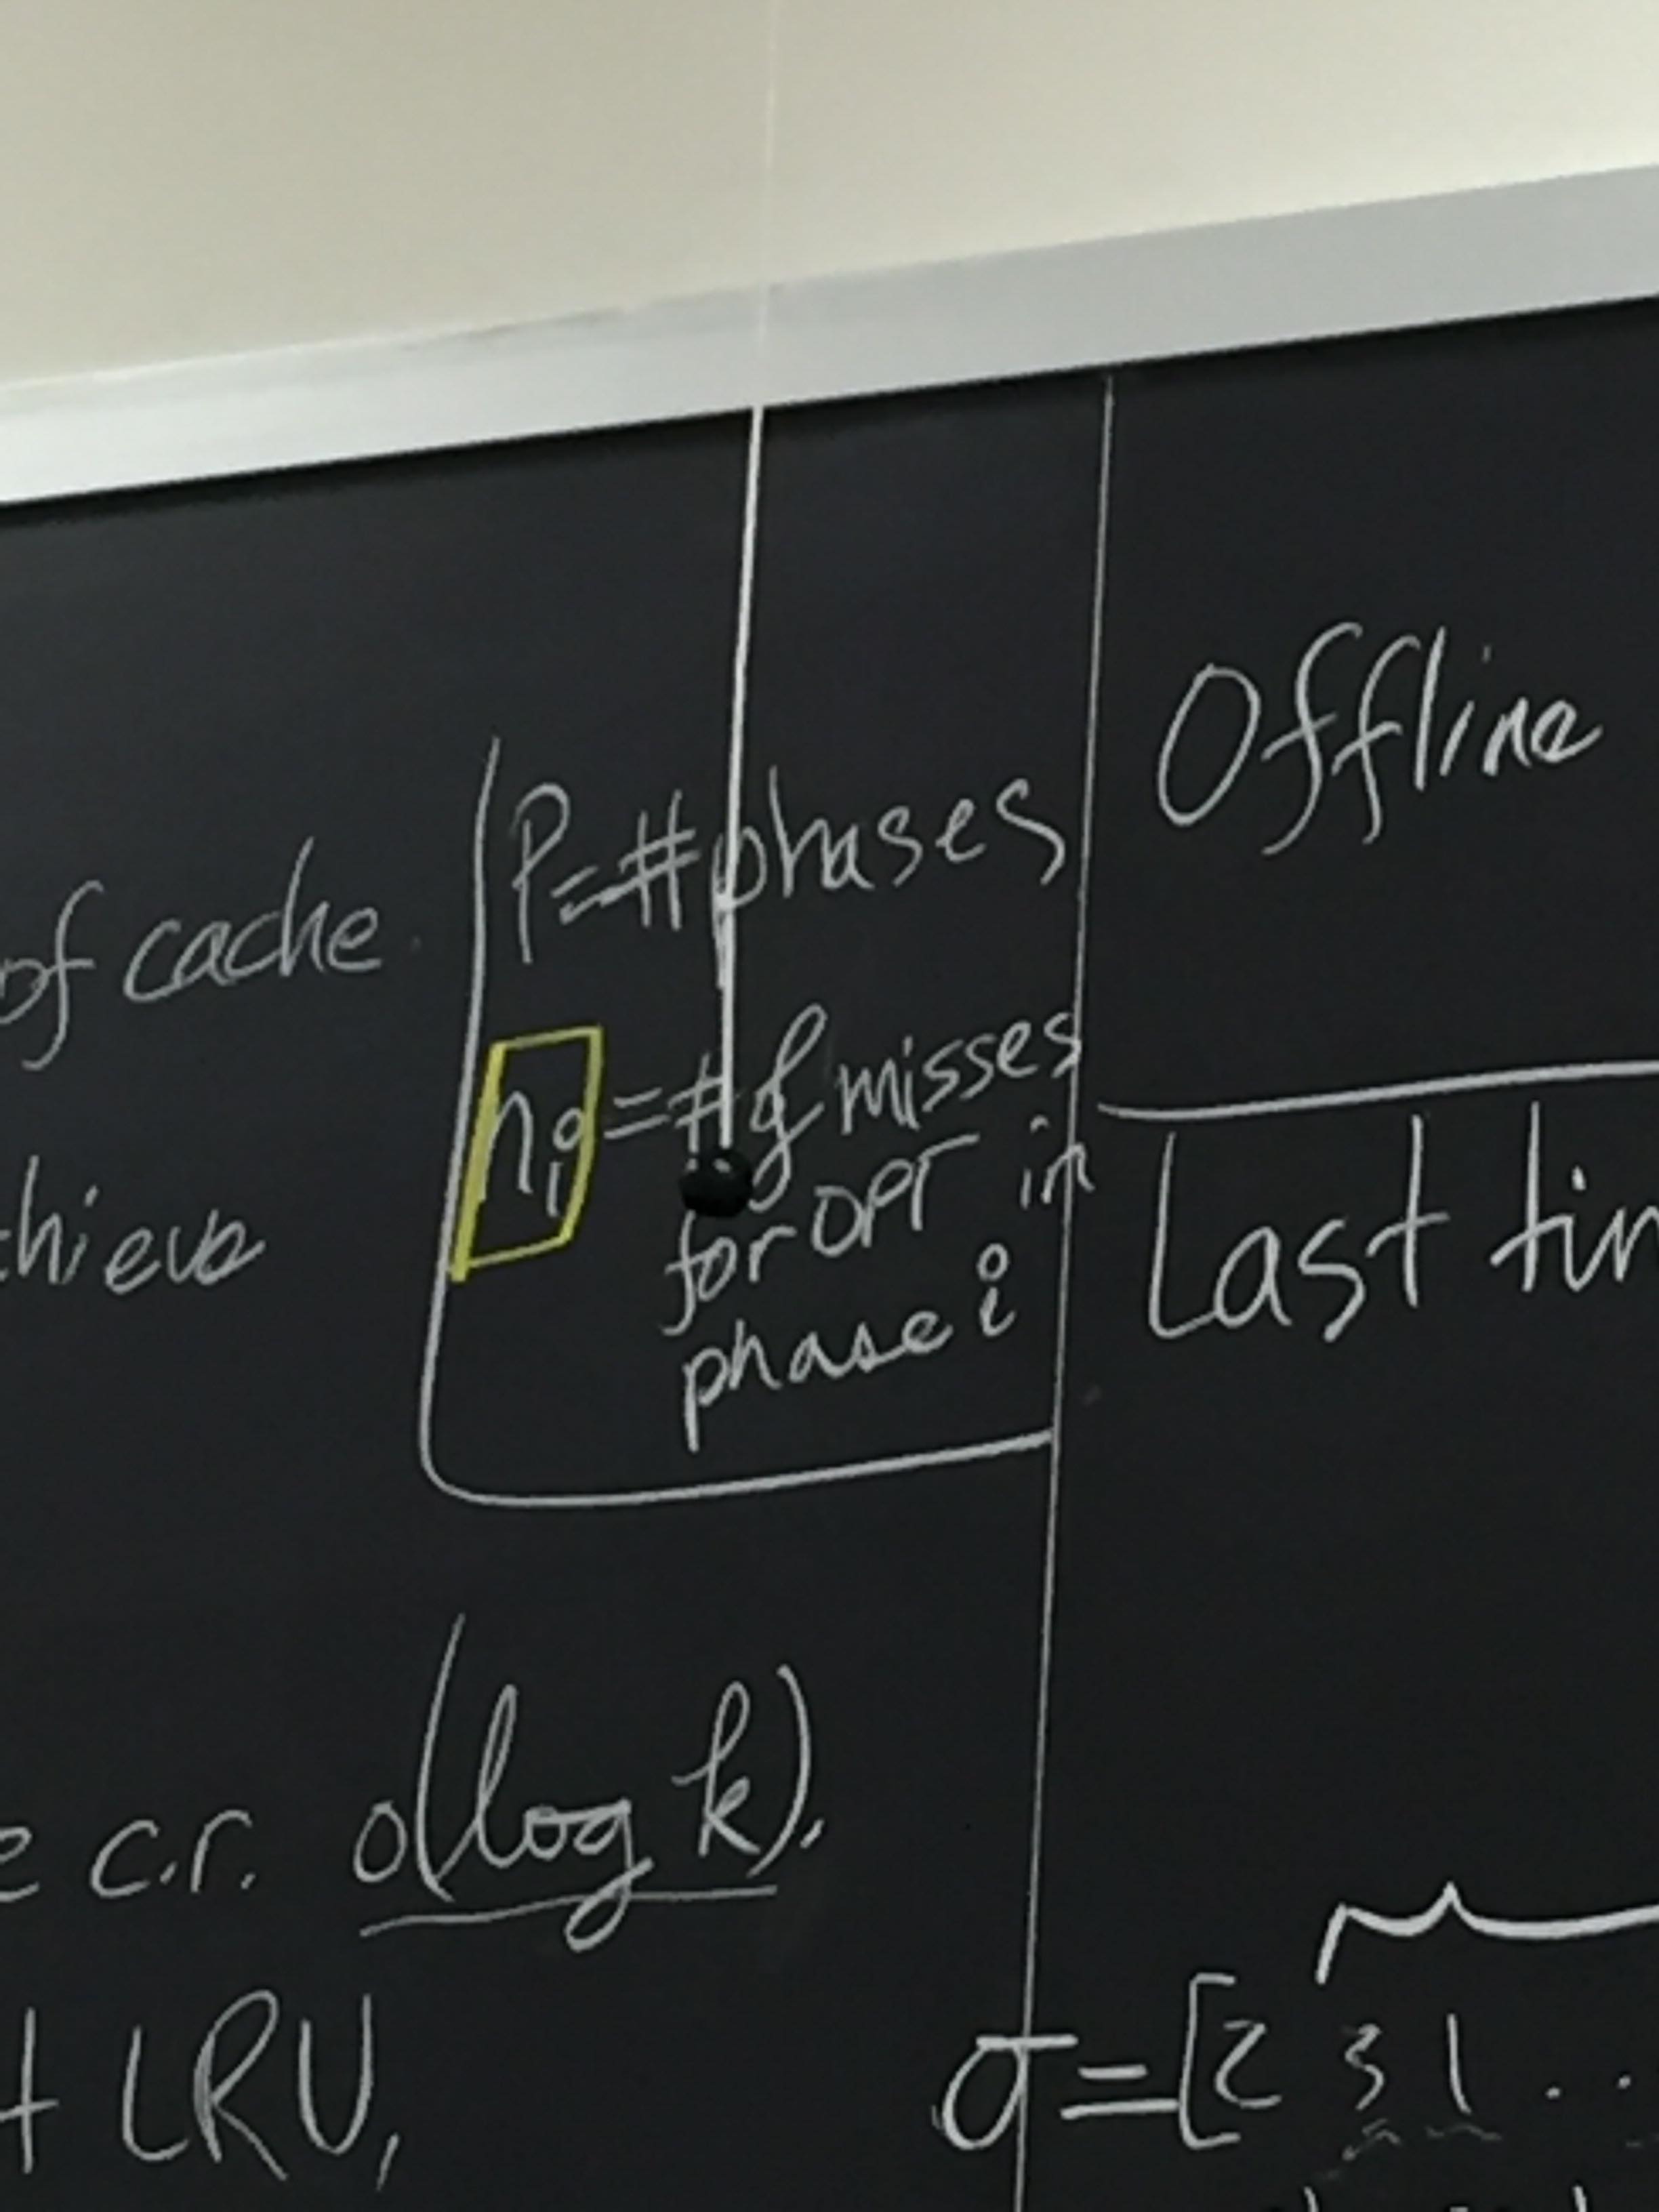 of cache.
chieve
P=#phases
ni=# of misses
for OPT in
phase i
e c.r. o(log k).
+ LRU,
Offline
Last tim
σ=[2 3 1 . .